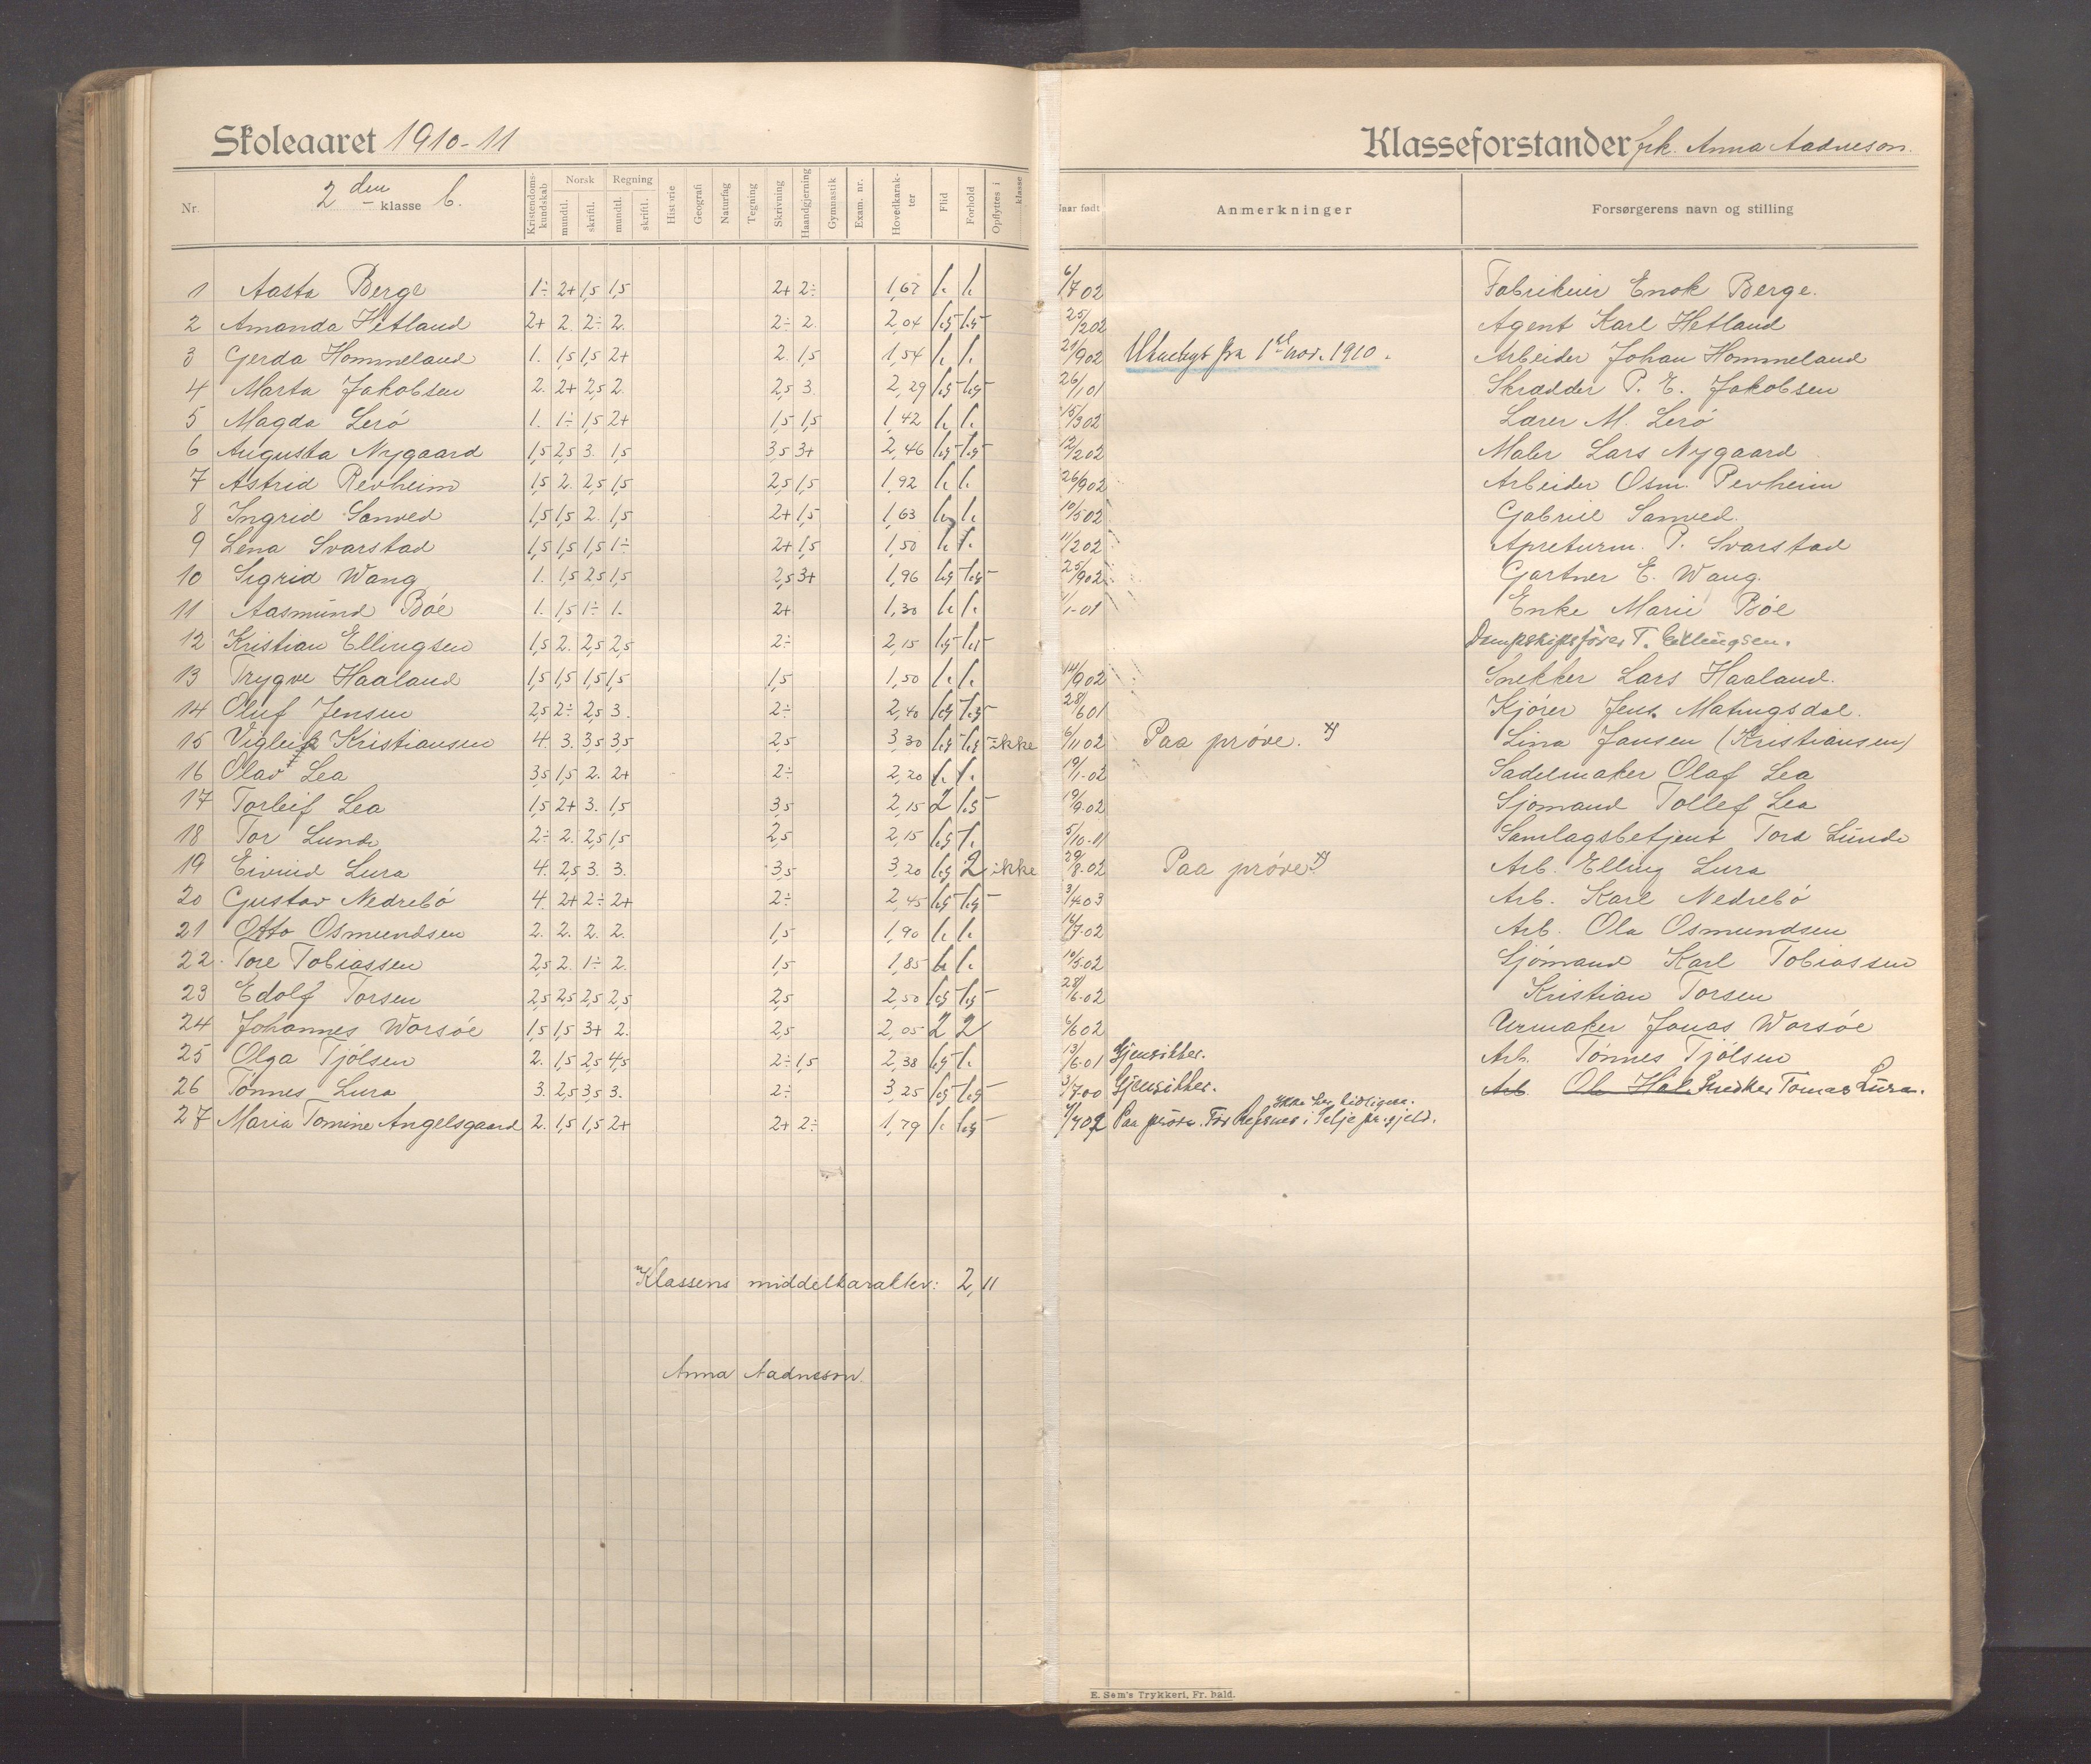 Skoleaaret 1910-11
Klasseforstander frk. Anna Aadneson.
Nr. 2den klasse b. Kristendomskundskab Norsk mundtl. skriftl. Regning mundtl. skriftl. Historie Geografi Naturfag Tegning Skrivning Haandgjerning Gymnastik Exam. nr. Hovedkarakter Flid Forhold Opflyttes i klasse Naar født Anmerkninger Forsørgerens navn og stilling
1 Aasta Berge 1÷ 2+ 1,5 1,5 2+ 2÷ 1,67 1. 1. 6/7 02 Fabrikeier Enok Berge.
2 Amanda Hetland 2+ 2. 2÷ 2. 2÷ 2. 2,04 1,5 1,5 25/2 02 Agent Karl Hetland
3 Gerda Hommeland 1. 1,5 1,5 2+ 2. 1,5 1,54 1. 1. 21/9 02 fra 1st nov. 1910. Arbeider Johan Hommeland
4 Marta Jakobsen 2. 2+ 2,5 2. 2,5 3. 2,29 1,5 1,5 26/1 01 Skrædder P. E. Jakobsen
5 Magda Lerö 1. 1÷ 1,5 2+ 1,5 1,5 1,42 1. 1. 15/3 02 Lærer M. Lerö
6 Augusta Nygaard 1,5 2,5 3. 1,5 3,5 3+ 2,46 1,5 1,5 12/2 02 Maler Lars Nygaard
7 Astrid Revheim 1,5 2. 2,5 1,5 2,5 1,5 1,92 1. 1. 26/9 02 Arbeider Osm. Revheim
8 Ingrid Sanved 1,5 1,5 2. 1,5 2+ 1,5 1,63 1. 10/5 02 Gabriel Sanved.
9 Lena Svarstad 1,5 1,5 1,5 1÷ 2+ 1,5 1,50 1. 1. 11/2 02 Apreturm. P. Svarstad
10 Sigrid Wang 1. 1,5 2,5 1,5 2,5 3+ 1,96 1,5 1,5 25/9 02 Gartner E. Wang.
11 Aasmund Böe 1. 1,5 1÷ 1. 2+ 1,30 1. 1. 1-01 Enke Marie Böe
12 Kristian Ellingsen 1,5 2. 2,5 2,5 2÷ 2,15 1,5 1,5 Dampskipsförer T. Ellingsen.
13 Trygve Haaland 1,5 1,5 1,5 1,5 1,5 1,50 1. 1. 14/9 02 Snekker Lars Haaland.
14 Oluf Jensen 2,5 2÷ 2,5 3. 2÷ 2,40 1,5 1,5 28/6 01 Kjörer Jens Matingsdal.
15 Vigleik Kristiansen 4. 3. 3,5 3,5 2,5 3,30 1,5 1,5 ikke 6/11 02 Paa pröve. Lina Jansen (Kristiansen)
16 Olav Lea 3,5 1,5 2. 2+ 2÷ 2,20 1. 1. 19/1-02 Sadelmaker Olaf Lea
17 Torleif Lea 1,5 2+ 3. 1,5 3,5 2,15 2 1,5 19/9-02 Sjömand Tollef Lea
18 Tor Lunde 2÷ 2. 2,5 1,5 2,5 2,15 1,5 1. 5/10-01 Samlagsbetjent Tord Lunde
19 Eivind Lura 4. 2,5 3. 3. 3,5 3,20 1,5 2 ikke 29/8-02 Paa pröve. Arb. Elling Lura
20 Gustav Nedrebö 4. 2+ 2÷ 2+ 2÷ 2,45 1,5 1,5 3/4 03 Arb. Karl Nedrebö
21 Otto Osmundsen 2. 2. 2. 2. 1,5 1,90 1. 1. 16/7-02 Arb. Ola Osmundsen
22. Tore Tobiassen 2,5 2. 1÷ 2. 1,5 1,85 1. 1. 10/5-02 Sjömand Karl Tobiassen
23 Edolf Torsen 2,5 2,5 2,5 2,5 2,5 2,50 1,5 1,5 28/6-02 Kristian Torsen
24 Johannes Worsöe 1,5 1,5 3+ 2. 2,5 2,05 2 2 6/6 02 Urmaker Jonas Worsöe
25 Olga Tjölsen 2. 1,5 2,5 4,5 2÷ 1,5 2,38 1,5 1. 13/6-01 Gjensitter. Arb. Tönnes Tjölsen
26 Tönnes Lura 3. 2,5 3,5 3. 2÷ 3,25 1,5 1,5 3/7-00 Gjensitter. Arb. Snedker Tomas Lura.
27 Maria Tomine Angelsgaard 2. 1,5 1,5 2+ 2+ 2÷ 1,79 1. 1,5 7/4 02 Paa pröve. Før Refsnes i Selje pr.gjeld.
Klassens middelkarakter: 2,11
Anna Aadneson.
E. Sem's Trykkeri, Fr.hald.